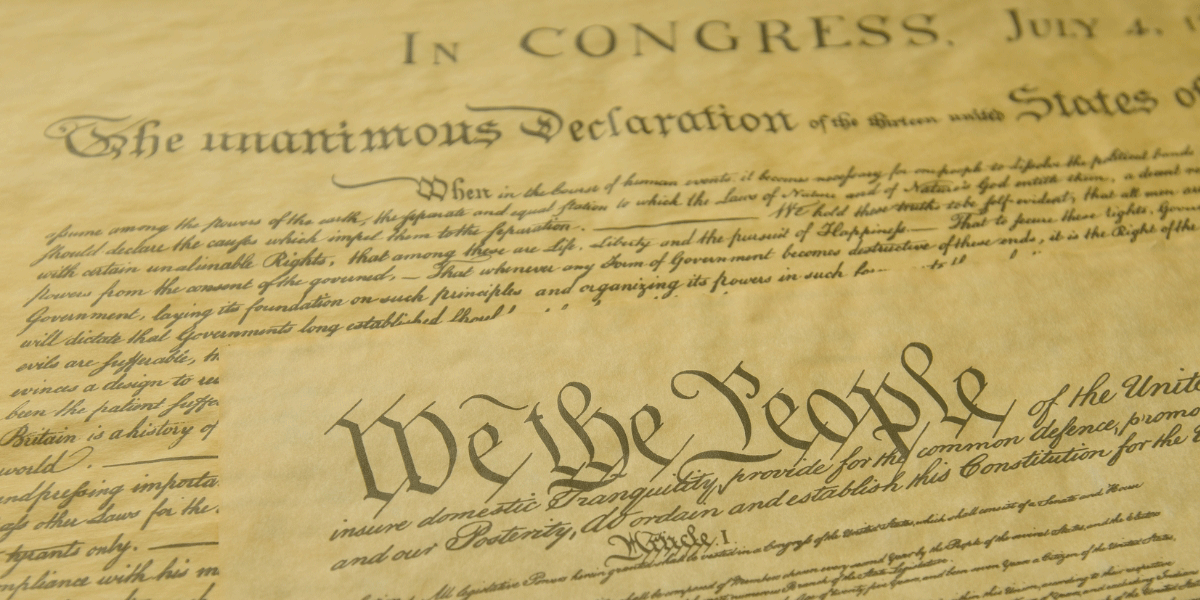 IN CONGRESS, JULY 4, 1
The unanimous Declaration of the thirteen united States of
When in the Course of human events, it becomes necessary for one people to dissolve the political bands
assume among the powers of the earth, the separate and equal station to which the Laws of Nature and of Nature's God entitle them, a decent
should declare the causes which impel them to the separation. We hold these truths to be self-evident, that all men are
with certain unalienable Rights, that among these are Life, Liberty and the pursuit of Happiness.— That to secure these rights, Gover
powers from the consent of the governed, — That whenever any Form of Government becomes destructive of these ends, it is the Right of the
Government, laying its foundation on such principles and organizing its powers in such
will dictate that Governments long established shoul
evils are sufferable, th
evinces a design to re
been the patient suffe
Britain is a history of
world.
and pressing importa
pass other Laws for the
tyrants only.
mpliance with his m
We the People of the Unite
insure domestic Tranquility, provide for the common defence, promo
and our Posterity, do ordain and establish this Constitution for the
Article. I.
All legislative Powers herein granted shall be vested in a Congress of the United States, which shall consist of a Senate and House
shall be composed of Members chosen every second Year by the People of the several States, and the Electors